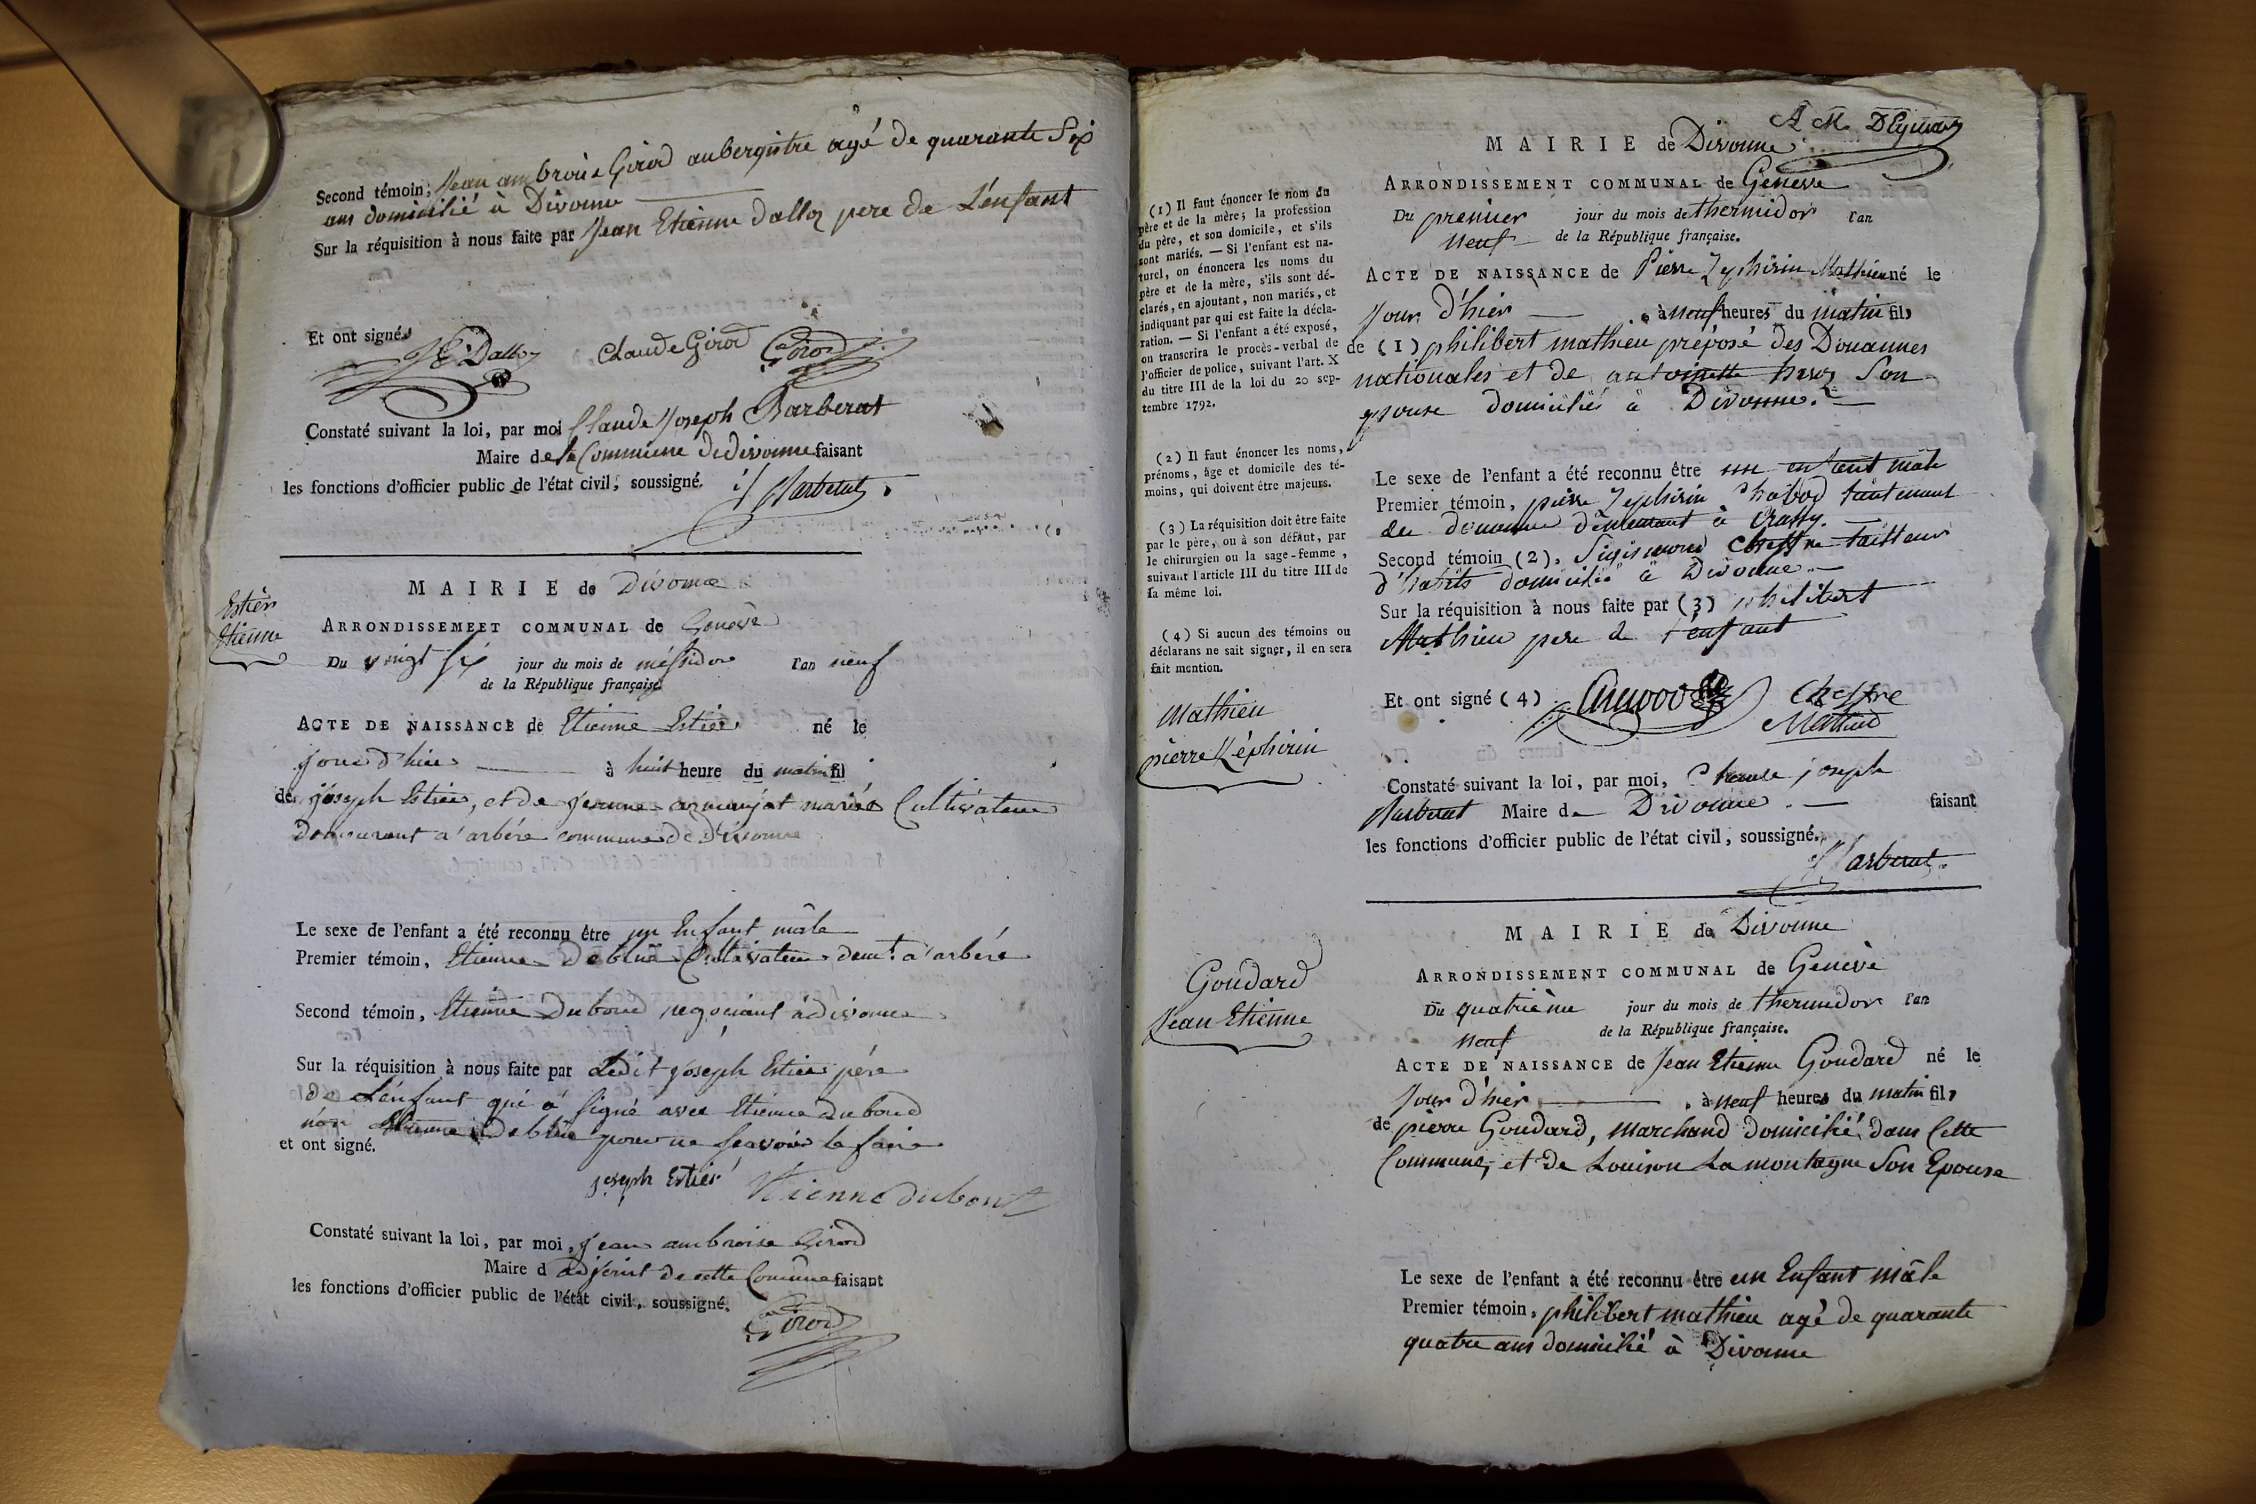 Second témoin, Jean ambroise Girod aubergiste agé de quarante Six
ans domicilié à Divonne
Sur la réquisition à nous faite par Jean Etienne dalloz pere de L'enfant
Et ont signé.
J E Dalloz Claude Girod Girod
Constaté suivant la loi, par moi Claude Joseph Barberat
Maire de la Commune de divonne faisant
les fonctions d'officier public de l'état civil, soussigné. Barberat
Estier
Etienne
MAIRIE de Divonne
ARRONDISSEMEET COMMUNAL de Genève
Du vingt six jour du mois de messidor l'an neuf
de la République française.
ACTE DE NAISSANCE de Etienne Estier né le
jour d'hier à huit heure du matin fil
de joseph Estier, et de jeanne mariés Cultivateur
demeurant a arbére commune de Divonne
Le sexe de l'enfant a été reconnu être un Enfant mâle
Premier témoin, Etienne Deblüe Cultivateur demt. a arbére
Second témoin, Etienne Duboud negociant à divonne
Sur la réquisition à nous faite par Ledit joseph Estier pére
de L'enfant qui a signé avec Etienne duboud
non Etienne Deblüe pour ne sçavoir le faire
et ont signé.
joseph Estier Etienne duboud
Constaté suivant la loi, par moi, jean ambroise Girod
Maire d adjoint de cette Commune faisant
les fonctions d'officier public de l'état civil, soussigné.
Girod
(1) Il faut énoncer le nom du
père et de la mère; la profession
du père, et son domicile, et s'ils
sont mariés. — Si l'enfant est na-
turel, on énoncera les noms du
père et de la mère, s'ils sont dé-
clarés, en ajoutant, non mariés, et
indiquant par qui est faite la décla-
ration. — Si l'enfant a été exposé,
on transcrira le procès-verbal de
l'officier de police, suivant l'art. X
du titre III de la loi du 20 sep-
tembre 1792.
(2) Il faut énoncer les noms,
prénoms, âge et domicile des té-
moins, qui doivent être majeurs.
(3) La réquisition doit être faite
par le père, ou à son défaut, par
le chirurgien ou la sage-femme,
suivant l'article III du titre III de
la même loi.
(4) Si aucun des témoins ou
déclarans ne sait signer, il en sera
fait mention.
Mathieu
pierre Zéphirin
Goudard
Jean Etienne
MAIRIE de Divonne
ARRONDISSEMENT COMMUNAL de Geneve
Du premier jour du mois de thermidor l'an
neuf de la République française.
ACTE DE NAISSANCE de Pierre Zephirin Mathieu né le
Jour d'hier à neuf heures du matin fils
de (1) philibert mathieu préposé des Douannes
nationales et de antoinette son
epouse domiciliés à Divonne.
Le sexe de l'enfant a été reconnu être un enfant mâle
Premier témoin, pierre Zephirin Chabod lieutenant
de douanne demeurant à Crassy.
Second témoin (2), Sigismond Chestre tailleur
d'habits domicilié à Divonne
Sur la réquisition à nous faite par (3) philibert
Mathieu pere de l'enfant
Et ont signé (4) Chestre
Mathieu
Constaté suivant la loi, par moi, Claude joseph
Barberat Maire de Divonne. faisant
les fonctions d'officier public de l'état civil, soussigné.
Barberat
MAIRIE de Divonne
ARRONDISSEMENT COMMUNAL de Genève
Du quatrième jour du mois de thermidor l'an
neuf de la République française.
ACTE DE NAISSANCE de Jean Etienne Goudard né le
Jour d'hier à neuf heures du matin fils
de pierre Goudard, marchand domicilié dans Cette
Commune, et de Louison Lamontagne Son Epouse
Le sexe de l'enfant a été reconnu être un Enfant mâle
Premier témoin, philibert mathieu agé de quarante
quatre ans domicilié à Divonne